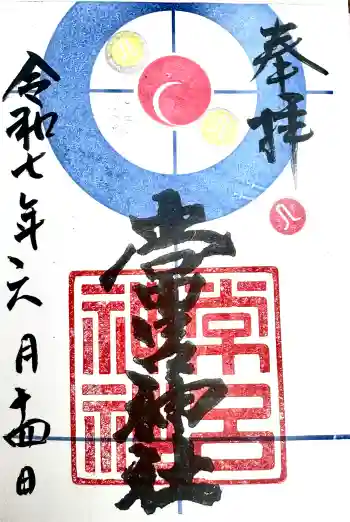 奉拝
常呂神社
常呂神社
令和七年六月十四日